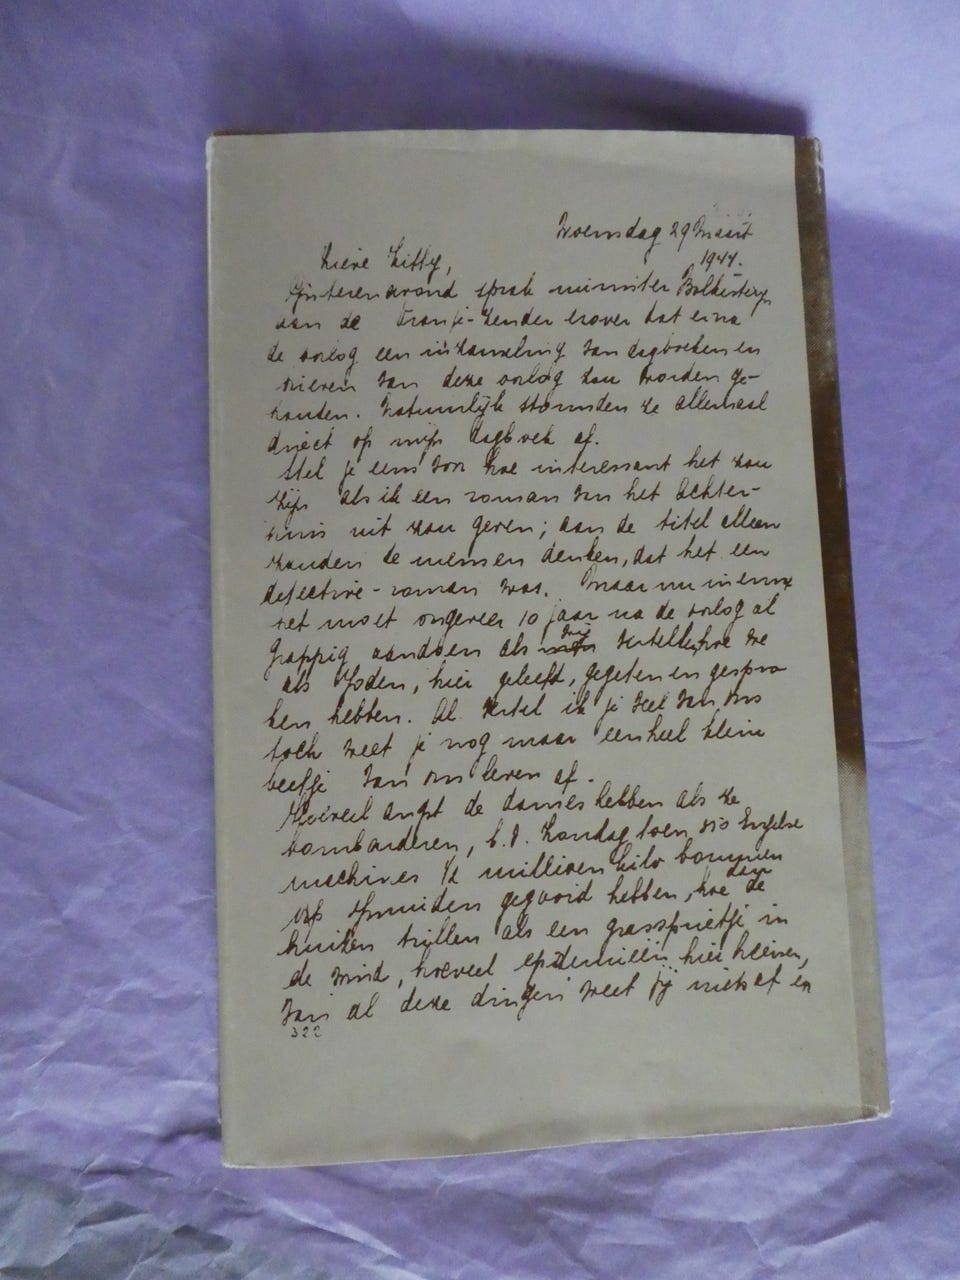 Woensdag 29 Maart
1944.
Lieve Kitty,
Gisterenavond sprak minister Bolkesteyn
aan de Oranje-zender erover dat er na
de oorlog een inzameling van dagboeken en
brieven van deze oorlog zou worden ge-
houden. Natuurlijk stormden ze allemaal
direct op mijn dagboek af.
Stel je eens voor hoe interessant het zou
zijn als ik een roman van het Achter-
huis uit zou geven; aan de titel alleen
zouden de mensen denken, dat het een
detective-roman was. Maar nu in ernst
het moet ongeveer 10 jaar na de oorlog al
grappig aandoen als wij vertellen, hoe we
als Joden, hier geleefd, gegeten en gespro
ken hebben. Al vertel ik je veel van ons
toch weet je nog maar een heel klein
beetje van ons leven af.
Hoeveel angst de dames hebben als ze
bombarderen, b.v. Zondag toen 350 Engelse
machines ½ millioen kilo bommen
op Ijmuiden gegooid hebben, hoe dan de
huizen trillen als een grassprietje in
de wind, hoeveel epidemieën hier heersen,
van al deze dingen weet jij niets af en
322